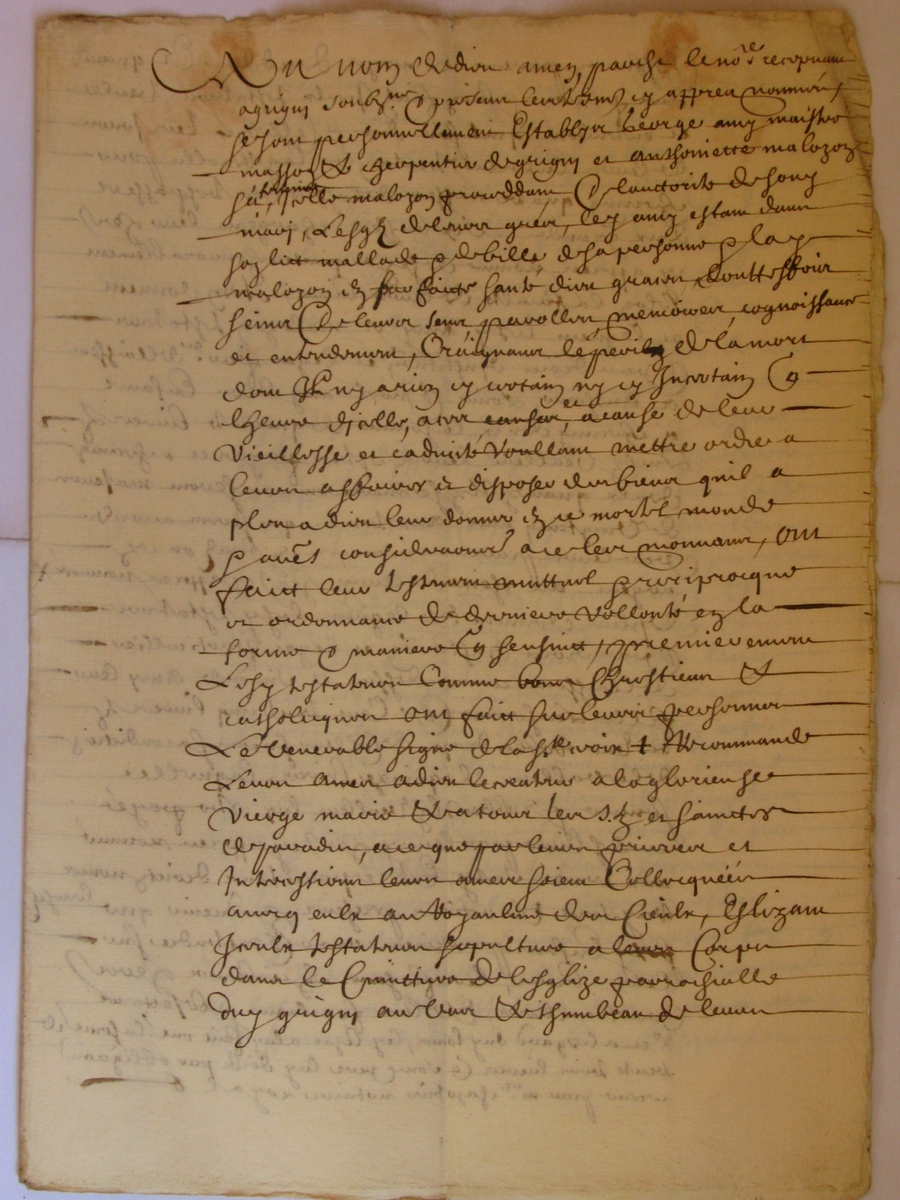 Au nom de dieu amen, par devant le no.re recepvant
a grigny soubzne & presents les tesmoings cy appres nommés,
se sont personnellement Establys George amy maistre
masson & cherpentier de grigny et anthoinette malozon
sa femme, icelle malozon proceddant de lauctorité de sond
mary, Lesqlz de leurs grés, ledy amy estant dans
son lict mallade & debille de sa personne & lad
malozon en parfaite santé dieu graces, touttesfois
sains de leurs sens parolles, memoires, cognoissance
et entendement, Craignans le peril de la mort
dont Il ny a rien cy certain ny cy Incertain que
lheure dicelle, a ces causes, et a cause de leur
Vieillesse et caducité Voullant mettre ordre a
leurs affaires et disposer des biens quil a
pleu a dieu leur donner en ce mortel monde
par aultres considerations a ce les mouvans, ont
faict leur testament muttuel & reciprocque
et ordonnance de derniere Vollonté en la
forme & maniere que sensuict, premierement
Lesdy testateurs Comme bons Chrestiens &
catholicques ont faict sur leurs personnes
Le Venerable signe de la Ste croix + Recommandé
Leurs Ames a dieu le createur a la glorieuse
Vierge marie & a tous les s.tz et sainctes
de paradis, a ce que par leurs prieres et
Intercessions leurs ames soient Collocquées
avecq eulx au Royaulme des Cieulx, Eslizant
Iceulx testateurs sepulture a leurs Corps
dans le Cimittiere de lesglize parrochialle
dudy grigny au Vas & thumbeau de leurs